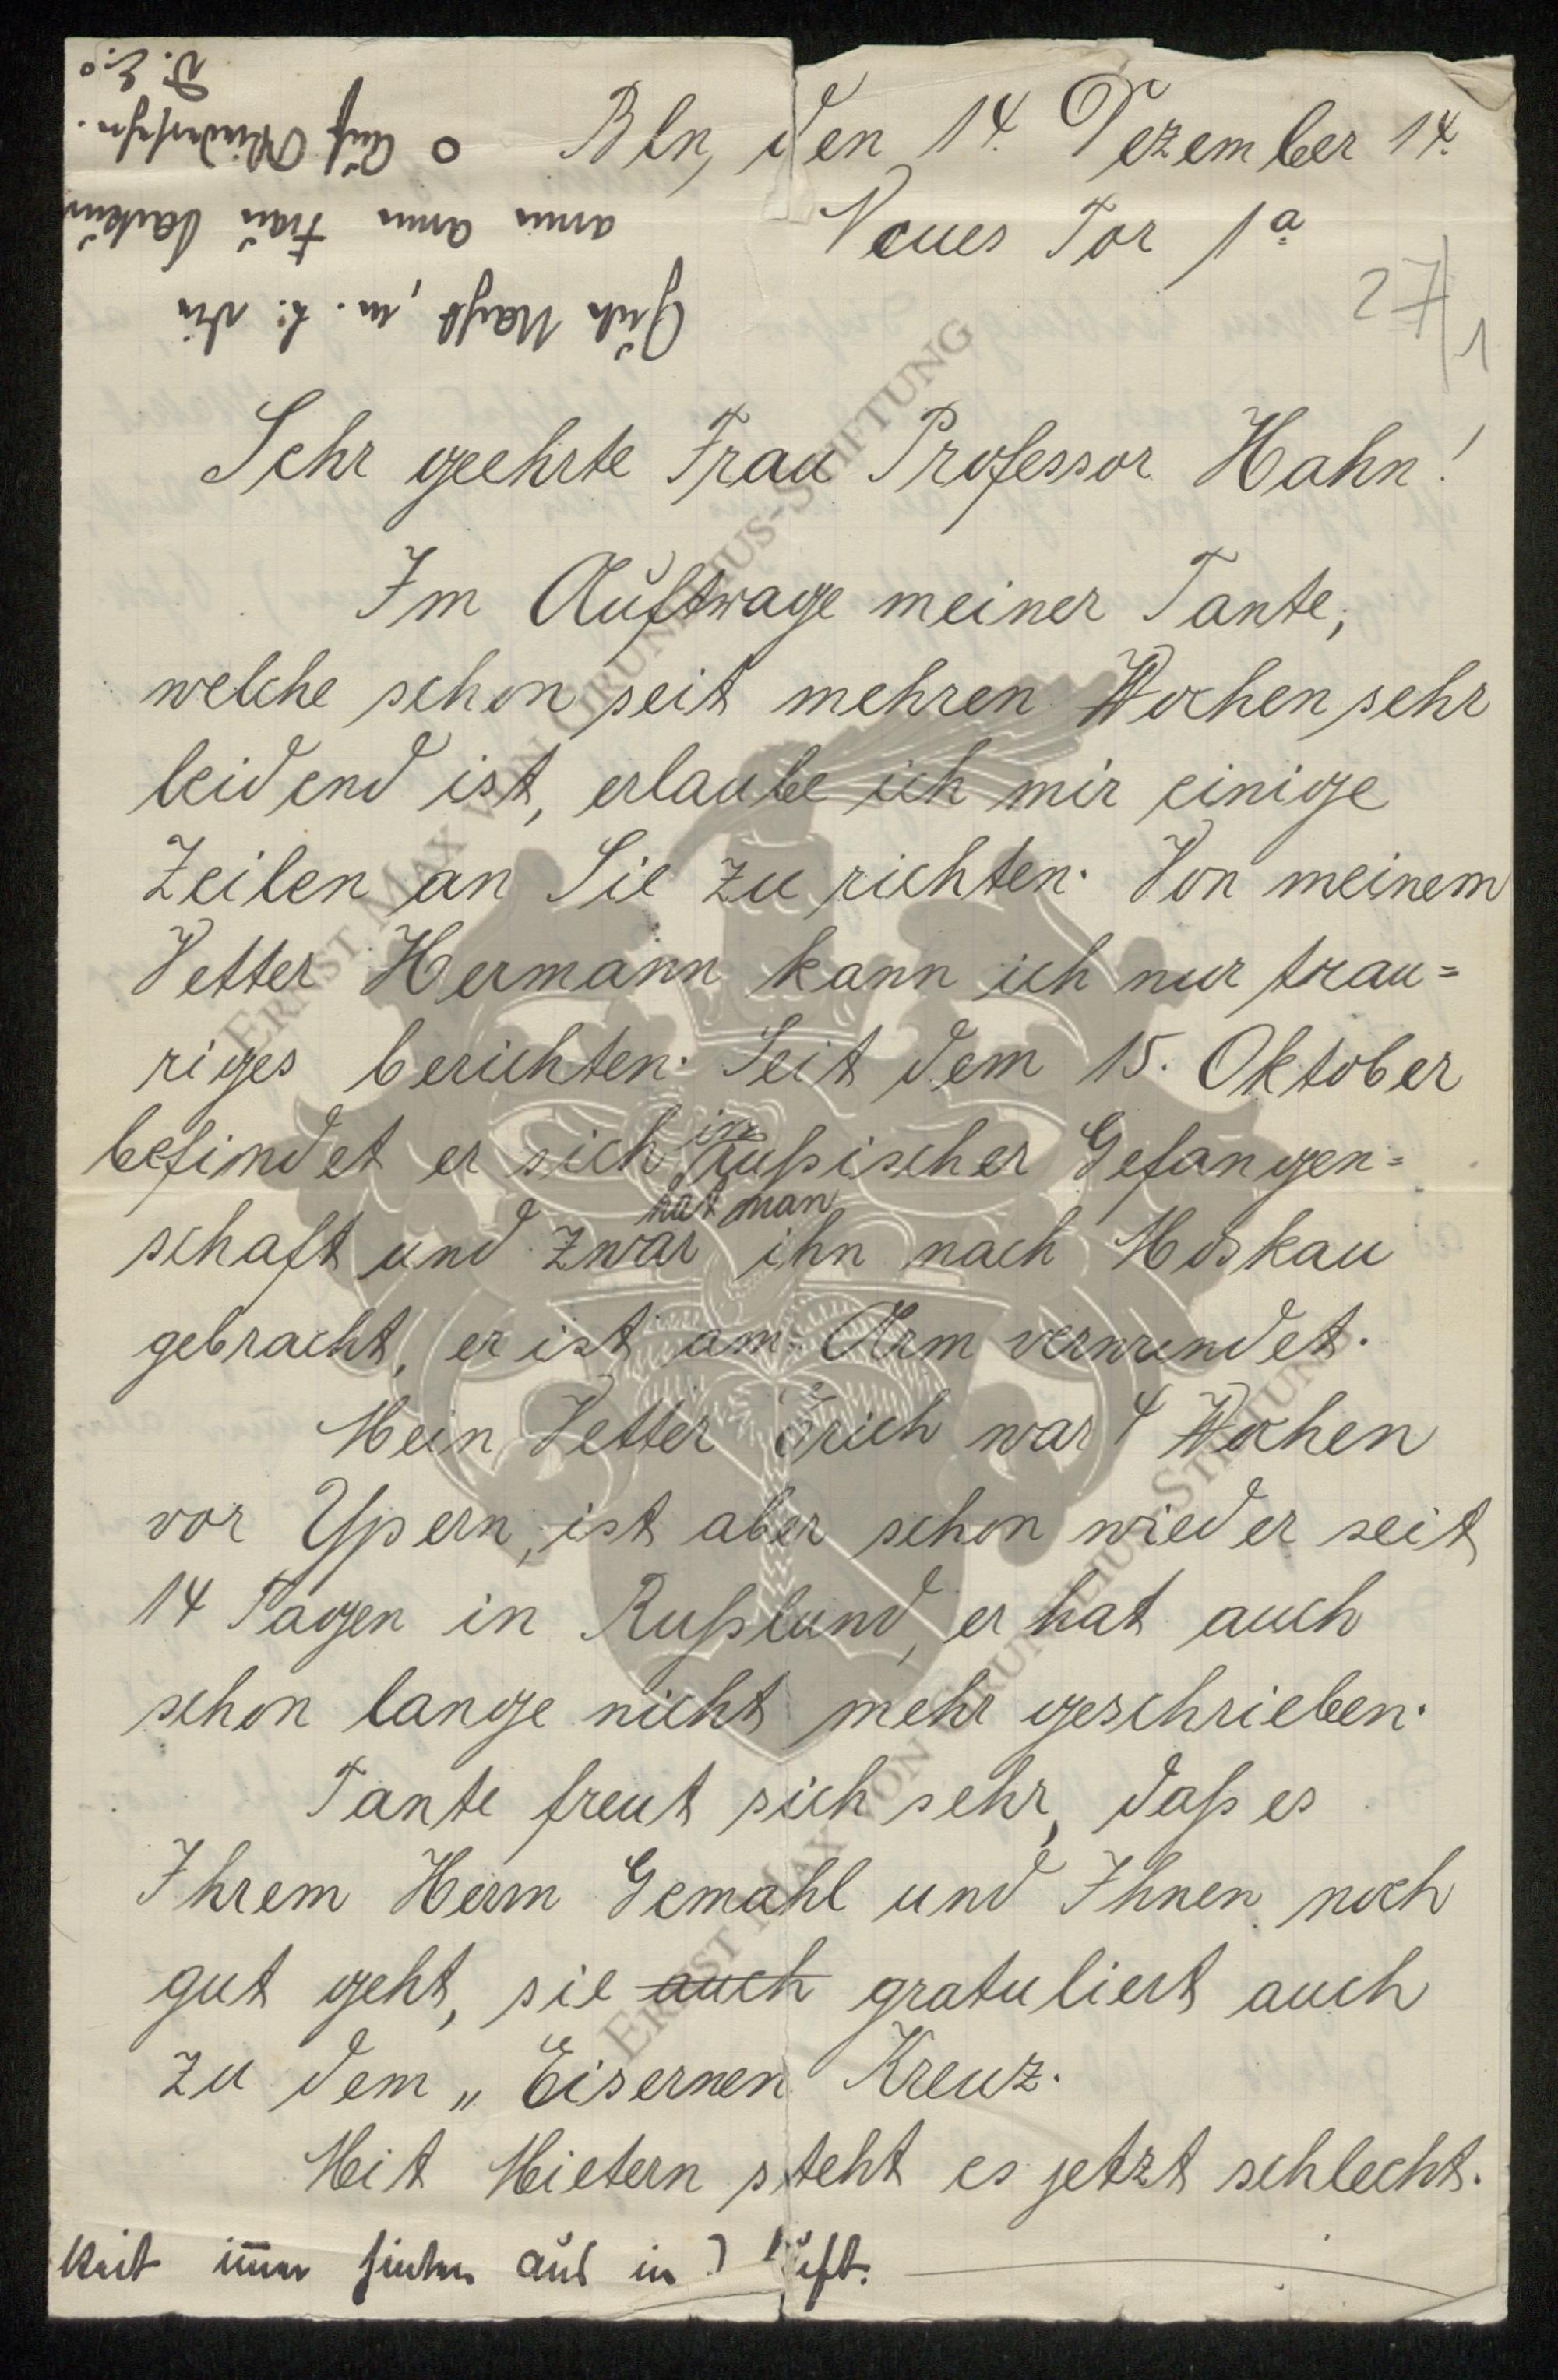 Bln, den 14. Dezember 14.
Neues Tor 1a
27/1
Sehr geehrte Frau Professor Hahn!
Im Auftrage meiner Tante,
welche schon seit mehren Wochen sehr
leidend ist, erlaube ich mir einige
Zeilen an Sie zu richten. Von meinem
Vetter Hermann kann ich nur trau=
riges berichten. Seit dem 15. Oktober
befindet er sich in rußischer Gefangen=
schaft und zwar hat man ihn nach Moskau
gebracht, er ist am Arm verwundet.
Mein Vetter Erich war 4 Wochen
vor Ypern, ist aber schon wieder seit
14 Tagen in Rußland, er hat auch
schon lange nicht mehr geschrieben.
Tante freut sich sehr, daß es
Ihrem Herrn Gemahl und Ihnen noch
gut geht, sie auch gratuliert auch
zu dem „Eisernen Kreuz.
Mit Mietern steht es jetzt schlecht.
aus in
Gute Nacht, m. l.
arme arme Frau
Auf Wiedersehn.
D. E.
ERNST MAX VON GRUNELIUS-STIFTUNG
ERNST MAX VON GRUNELIUS-STIFTUNG